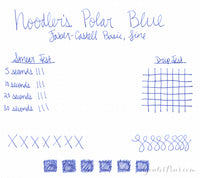 Noodler's Polar Blue
Faber-Castell Basic, fine
Smear Test
Drip Test
5 seconds
10 seconds
20 seconds
30 seconds
XXXXXXX